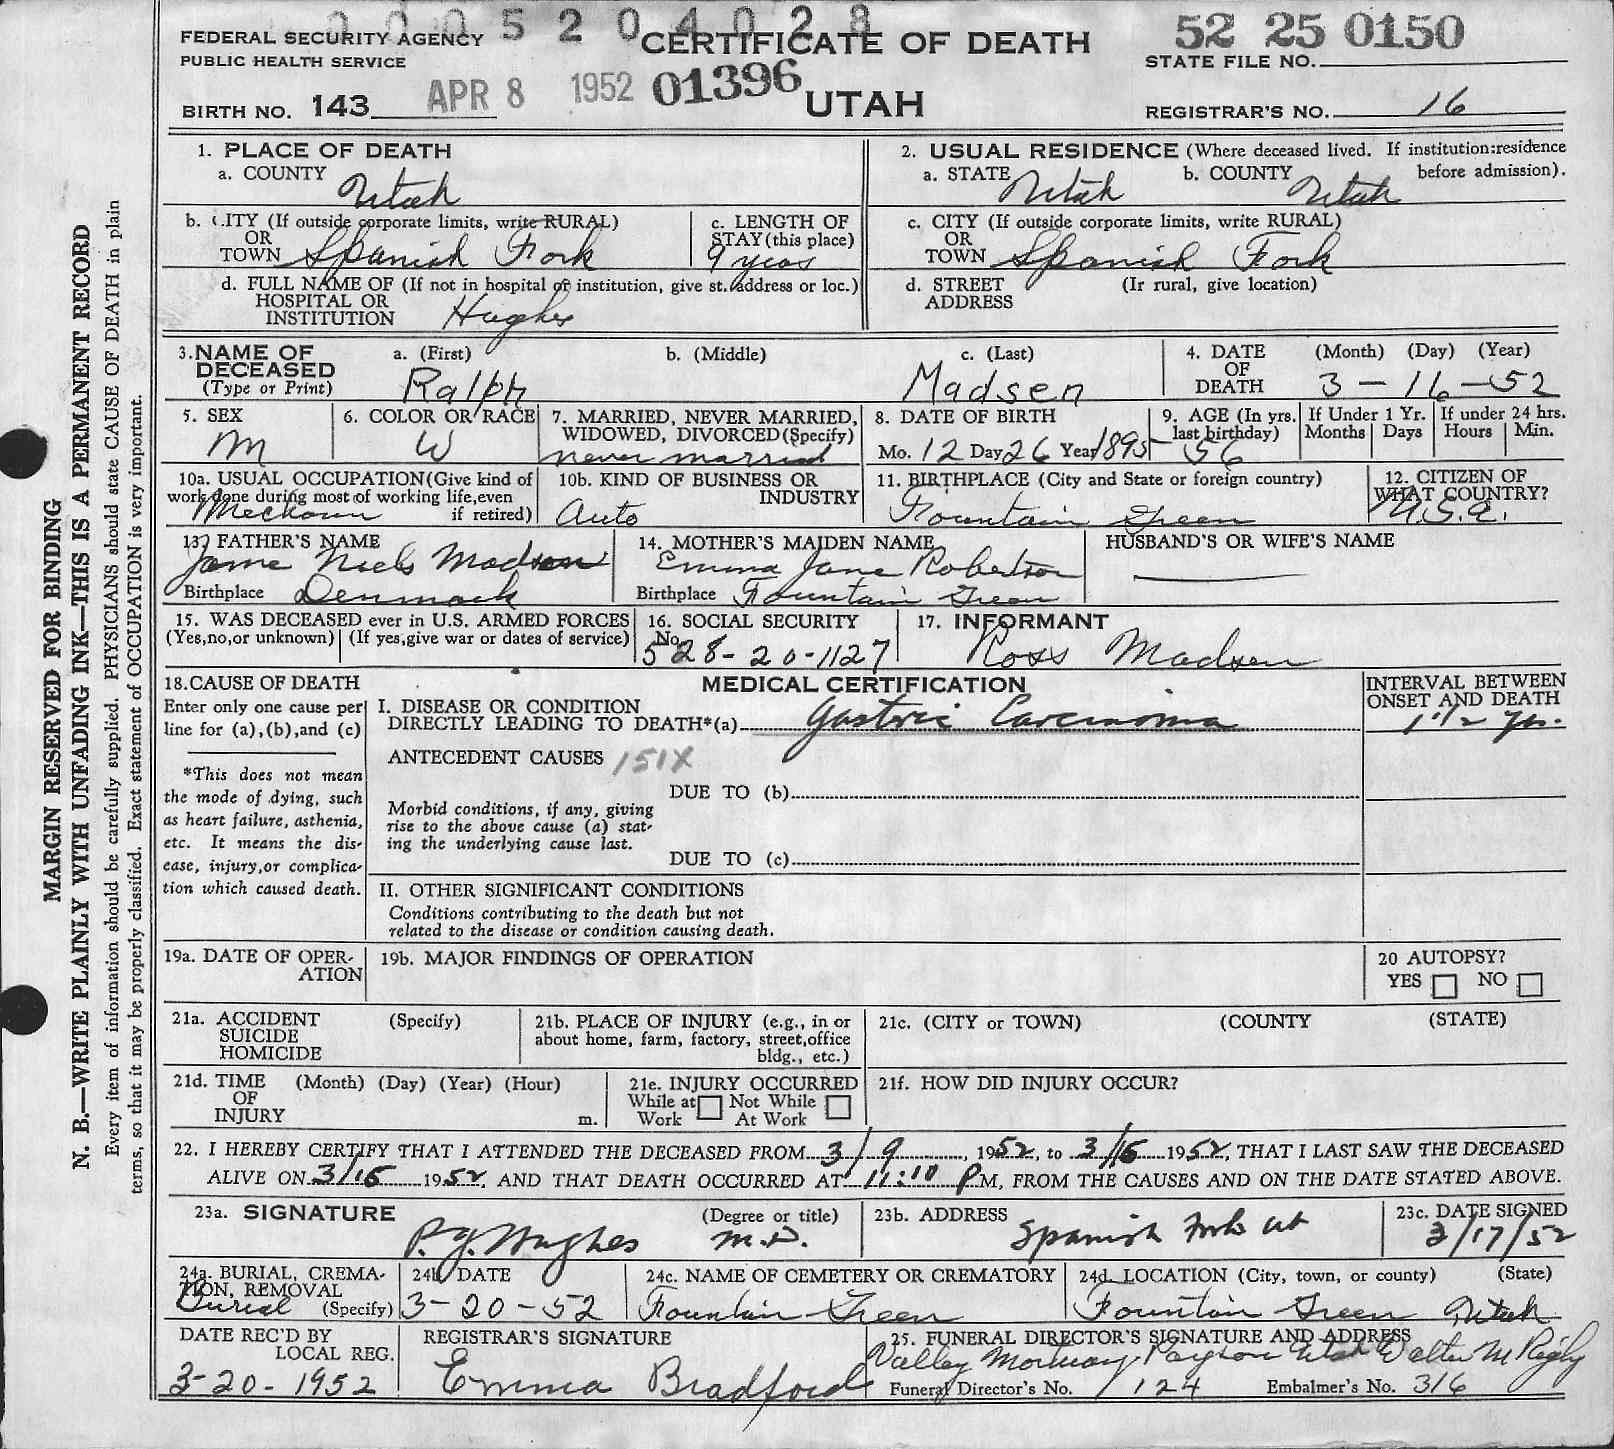 0005204028
FEDERAL SECURITY AGENCY
PUBLIC HEALTH SERVICE
BIRTH NO. 143
APR 8 1952 01396
CERTIFICATE OF DEATH
UTAH
52 25 0150
STATE FILE NO.
REGISTRAR'S NO. 16
MARGIN RESERVED FOR BINDING
N. B.—WRITE PLAINLY WITH UNFADING INK—THIS IS A PERMANENT RECORD
Every item of information should be carefully supplied. PHYSICIANS should state CAUSE OF DEATH in plain
terms, so that it may be properly classified. Exact statement of OCCUPATION is very important.
1. PLACE OF DEATH
a. COUNTY Utah
b. CITY (If outside corporate limits, write RURAL)
OR
TOWN Spanish Fork
c. LENGTH OF
STAY (this place)
9 years
d. FULL NAME OF (If not in hospital or institution, give st. address or loc.)
HOSPITAL OR
INSTITUTION Hughes
2. USUAL RESIDENCE (Where deceased lived. If institution:residence
before admission).
a. STATE Utah b. COUNTY Utah
c. CITY (If outside corporate limits, write RURAL)
OR
TOWN Spanish Fork
d. STREET (Ir rural, give location)
ADDRESS
3. NAME OF
DECEASED
(Type or Print)
a. (First) b. (Middle) c. (Last)
Ralph Madsen
4. DATE
OF
DEATH
(Month) (Day) (Year)
3 - 16 - 52
5. SEX
M
6. COLOR OR RACE
W
7. MARRIED, NEVER MARRIED,
WIDOWED, DIVORCED (Specify)
never married
8. DATE OF BIRTH
Mo. 12 Day 26 Year 1895
9. AGE (In yrs.
last birthday)
56
If Under 1 Yr.
Months Days
If under 24 hrs.
Hours Min.
10a. USUAL OCCUPATION (Give kind of
work done during most of working life, even
if retired)
10b. KIND OF BUSINESS OR
INDUSTRY
Auto
11. BIRTHPLACE (City and State or foreign country)
Fountain Green
12. CITIZEN OF
WHAT COUNTRY?
U.S.A.
13. FATHER'S NAME
Jame Niels Madsen
Birthplace Denmark
14. MOTHER'S MAIDEN NAME
Emma Jane Robertson
Birthplace Fountain Green
HUSBAND'S OR WIFE'S NAME
15. WAS DECEASED ever in U.S. ARMED FORCES
(Yes, no, or unknown) (If yes, give war or dates of service)
16. SOCIAL SECURITY
No.
528-20-1127
17. INFORMANT
Ross Madsen
18. CAUSE OF DEATH
Enter only one cause per
line for (a), (b), and (c)
*This does not mean
the mode of dying, such
as heart failure, asthenia,
etc. It means the dis-
ease, injury, or complica-
tion which caused death.
MEDICAL CERTIFICATION
I. DISEASE OR CONDITION
DIRECTLY LEADING TO DEATH*(a) Gastric Carcinoma
INTERVAL BETWEEN
ONSET AND DEATH
1 1/2 yrs.
ANTECEDENT CAUSES 151X
DUE TO (b)
Morbid conditions, if any, giving
rise to the above cause (a) stat-
ing the underlying cause last.
DUE TO (c)
II. OTHER SIGNIFICANT CONDITIONS
Conditions contributing to the death but not
related to the disease or condition causing death.
19a. DATE OF OPER-
ATION
19b. MAJOR FINDINGS OF OPERATION
20 AUTOPSY?
YES NO
21a. ACCIDENT (Specify)
SUICIDE
HOMICIDE
21b. PLACE OF INJURY (e.g., in or
about home, farm, factory, street, office
bldg., etc.)
21c. (CITY or TOWN) (COUNTY (STATE)
21d. TIME (Month) (Day) (Year) (Hour)
OF
INJURY m.
21e. INJURY OCCURRED
While at Not While
Work At Work
21f. HOW DID INJURY OCCUR?
22. I HEREBY CERTIFY THAT I ATTENDED THE DECEASED FROM 3/9, 1952, to 3/16 1952, THAT I LAST SAW THE DECEASED
ALIVE ON 3/16 1952, AND THAT DEATH OCCURRED AT 11:10 P M, FROM THE CAUSES AND ON THE DATE STATED ABOVE.
23a. SIGNATURE (Degree or title)
P. J. Hughes M.D.
23b. ADDRESS
Spanish Fork Ut
23c. DATE SIGNED
3/17/52
24a. BURIAL, CREMA-
TION, REMOVAL
Burial (Specify)
24b DATE
3-20-52
24c. NAME OF CEMETERY OR CREMATORY
Fountain Green
24d. LOCATION (City, town, or county) (State)
Fountain Green Utah
DATE REC'D BY
LOCAL REG.
3-20-1952
REGISTRAR'S SIGNATURE
Emma Bradford
25. FUNERAL DIRECTOR'S SIGNATURE AND ADDRESS
Valley Mortuary Payson Utah Walter M Rigby
Funeral Director's No. 124 Embalmer's No. 316